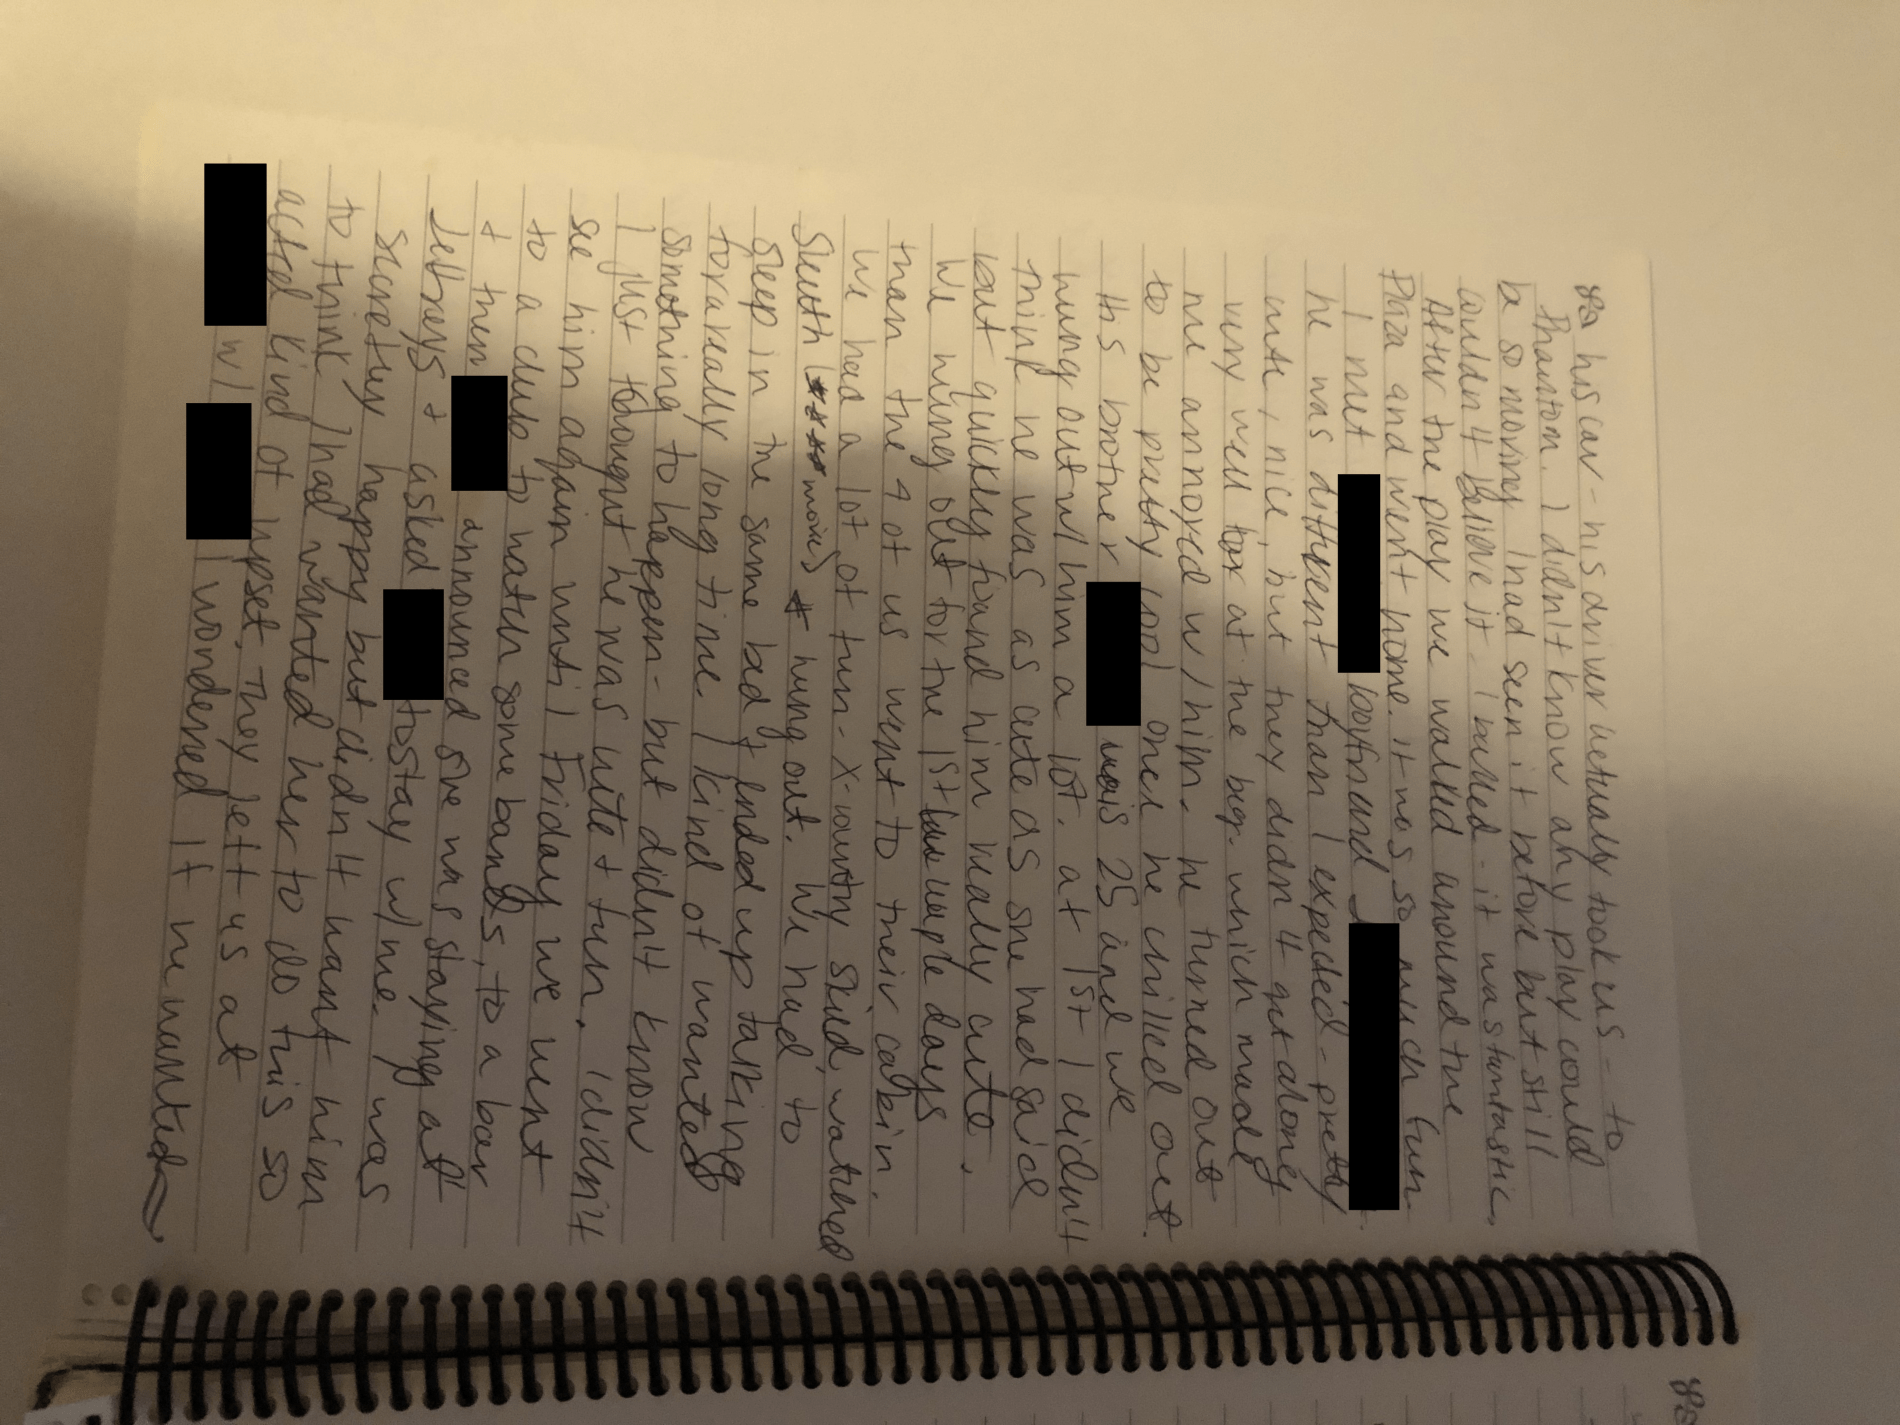 his car - his driver actually took us - to
Phantom. I didn't know any play could
be so moving. I had seen it before but still
couldn't believe it. I balled - it was fantastic.
After the play we walked around the
Plaza and went home. It was so much fun.
I met boyfriend
he was different than I expected - pretty
cute, nice, but they didn't get along
very well for at the beg. which made
me annoyed w/ him. he turned out
to be pretty cool once he chilled out.
His brother was is 25 and we
hung out w/ him a lot. at 1st I didn't
think he was as cute as she had said
but quickly found him really cute.
We hung out for the 1st couple days
than the 4 of us went to their cabin.
We had a lot of fun - x-country skied watched
Sleuth (movie) & hung out. We had to
sleep in the same bed & ended up talking
for a really long time. I kind of wanted
something to happen - but didn't know
I just thought he was cute & fun. I didn't
see him again until Friday we went
to a club to watch some bands, to a bar
& then announced she was staying at
Jeffrey's & asked to stay w/ me. I was
secretly happy but didn't want him
to think I had wanted her to do this so
acted kind of upset. They left us at
w/ I wondered if he wanted